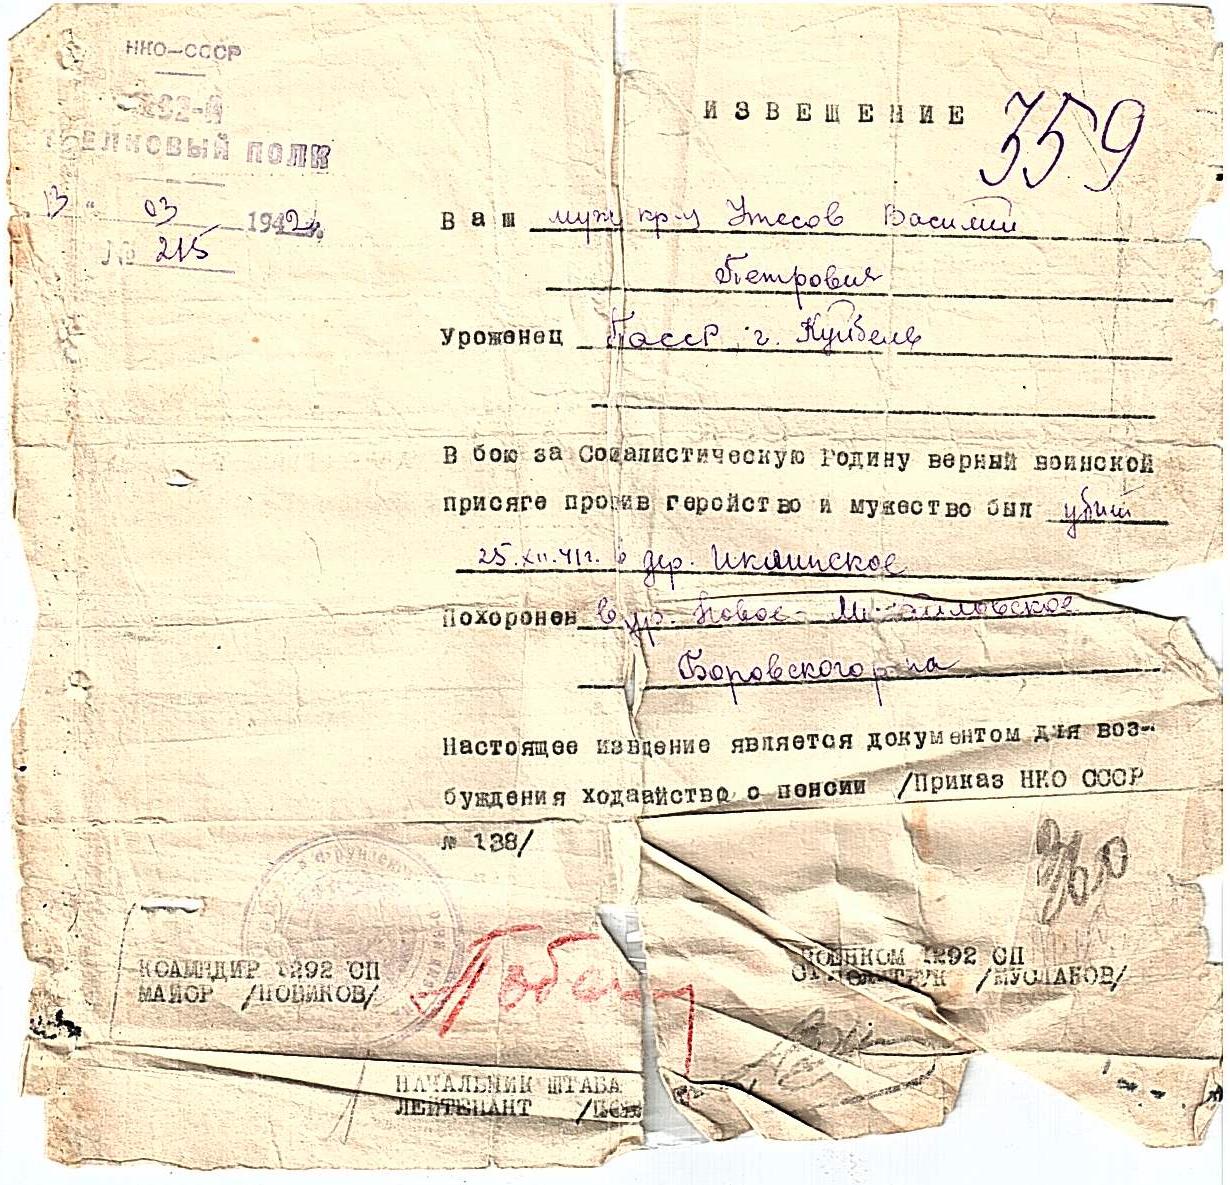 НКО—СССР
1292-Й
СТРЕЛКОВЫЙ ПОЛК
13 " 03 1942г.
№ 215
ИЗВЕЩЕНИЕ 359
Ваш муж кр-ц Утесов Василий
Петрович
Уроженец г. Куйбышев
В бою за Социалистическую Родину верный воинской
присяге проявив геройство и мужество был убит
25.XII.41г. в дер. Иклинское
Похоронен в др. Новое-Михайловское
Боровского р-на
Настоящее извщение является документом для воз-
буждения ходаайства о пенсии /Приказ НКО СССР
№ 138/
КОАМНДИР 1292 СП
МАЙОР /НОВИКОВ/
ВОЕНКОМ 1292 СП
СТ ПОЛИТРУК /МУСЛАКОВ/
НАЧАЛЬНИК ШТАБА
ЛЕЙТЕНАНТ